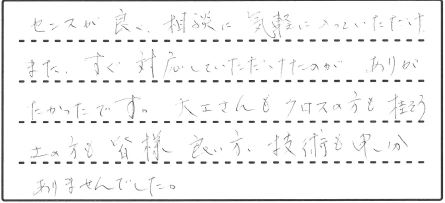 センスが良い、相談に気軽にのっていただけ
また、すぐ対応していただけたのが、ありが
たかったです。大工さんもクロスの方も
土の方も皆様良い方、技術も申し分
ありませんでした。